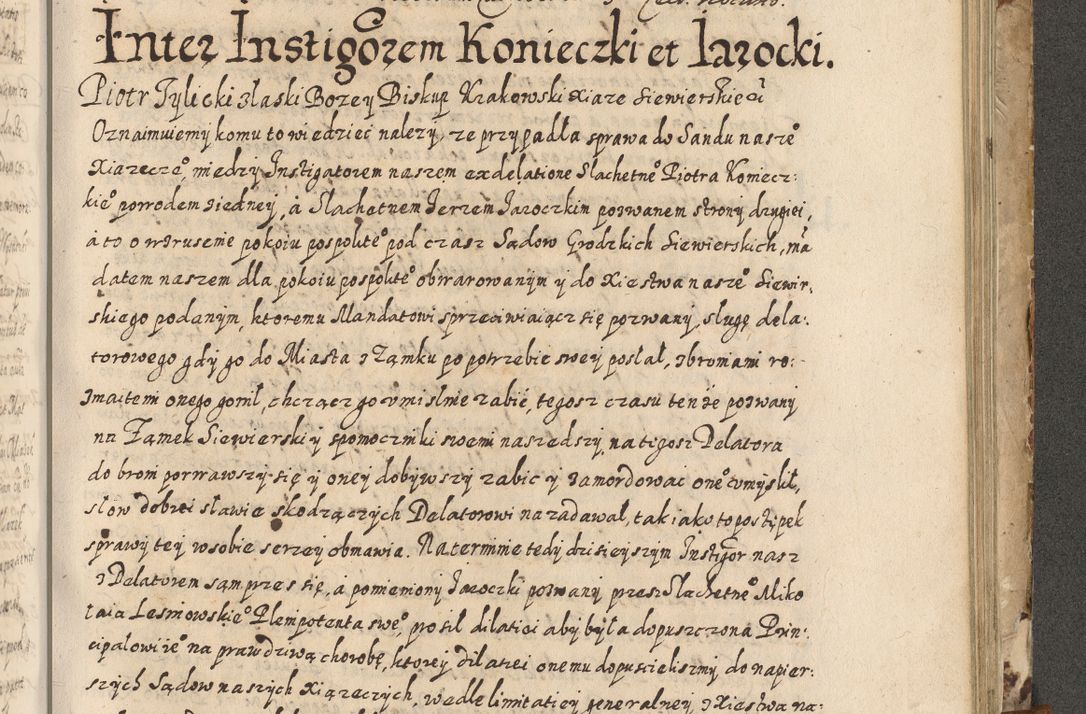 Inter Instigorem Konieczki et Jarocki.
Piotr Tylicki z łaski Bozey Biskup Krakowski Xiaze Siewierskie
Oznaimuiemy komu to wiedziec nalezy, ze przypadła sprawa do Sandu nasze°
Xiazecze°, miedzy Instigatorem naszem ex delatione Slachetne° Piotra Koniecz:
kie° powodem z iedney, a Slachetnem Jerzem Jaroczkim pozwanem strony drugiei,
a to o wzrusenie pokoiu pospolite° pod czasz Sądow Grodzkich Siewierskich, mą
datem naszem dla pokoiu pospolite° obwarowanym y do Xiestwa nasze° Siewir:
skiego podanym, ktoremu Mandatowi sprzeciwiaiącz się pozwany, slugę dela:
torowego gdy go do Miasta z Zamku po potrzebie swey posłał, z bromami ro:
zmaitemi onego gonił, chcząc go vmislnie zabić, tegosz czasu tenże pozwany
na Zamek Siewierski y spomoczniki swemi naszedszy, na tigosz Delatora
do broni porwawszy się y oney dobywszy zabic y zamordowac one° vmyslił,
słow dobrei sławie skodzączych Delatorowi nazadawał, tak iako to postępek
sprawy tey w sobie serzey obmawia. Na terminie tedy dzisieyszym Instigor nasz
z Delatorem sam przes się, a pomieniony Jaroczki pozwany przes Slachetne° Miko
łaia Lesniowskie° Plenipotenta swe°, prosił dilatiei aby była dopuszczona Prin:
cipałowi ie° na prawdziwą chorobę, ktorey dilatiei onemu dopuscielismy do napier:
szych Sądow naszych Xiązeczych, wedle limitatiey generalney z Xiestwa na: